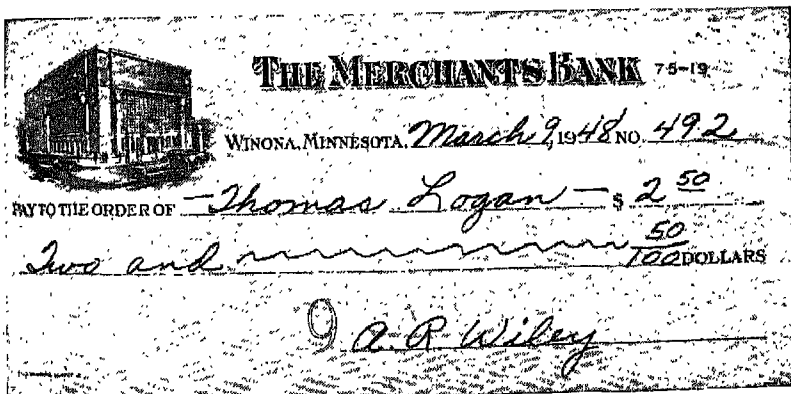 THE MERCHANTS BANK 75-19
WINONA, MINNESOTA, March 9, 1948 NO. 492
PAY TO THE ORDER OF Thomas Logan $ 2 50
Two and 50/100 DOLLARS
9 A. R. Wiley